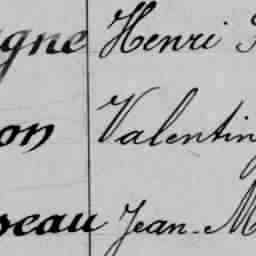 gne Henri
on Valentin
seau Jean-M